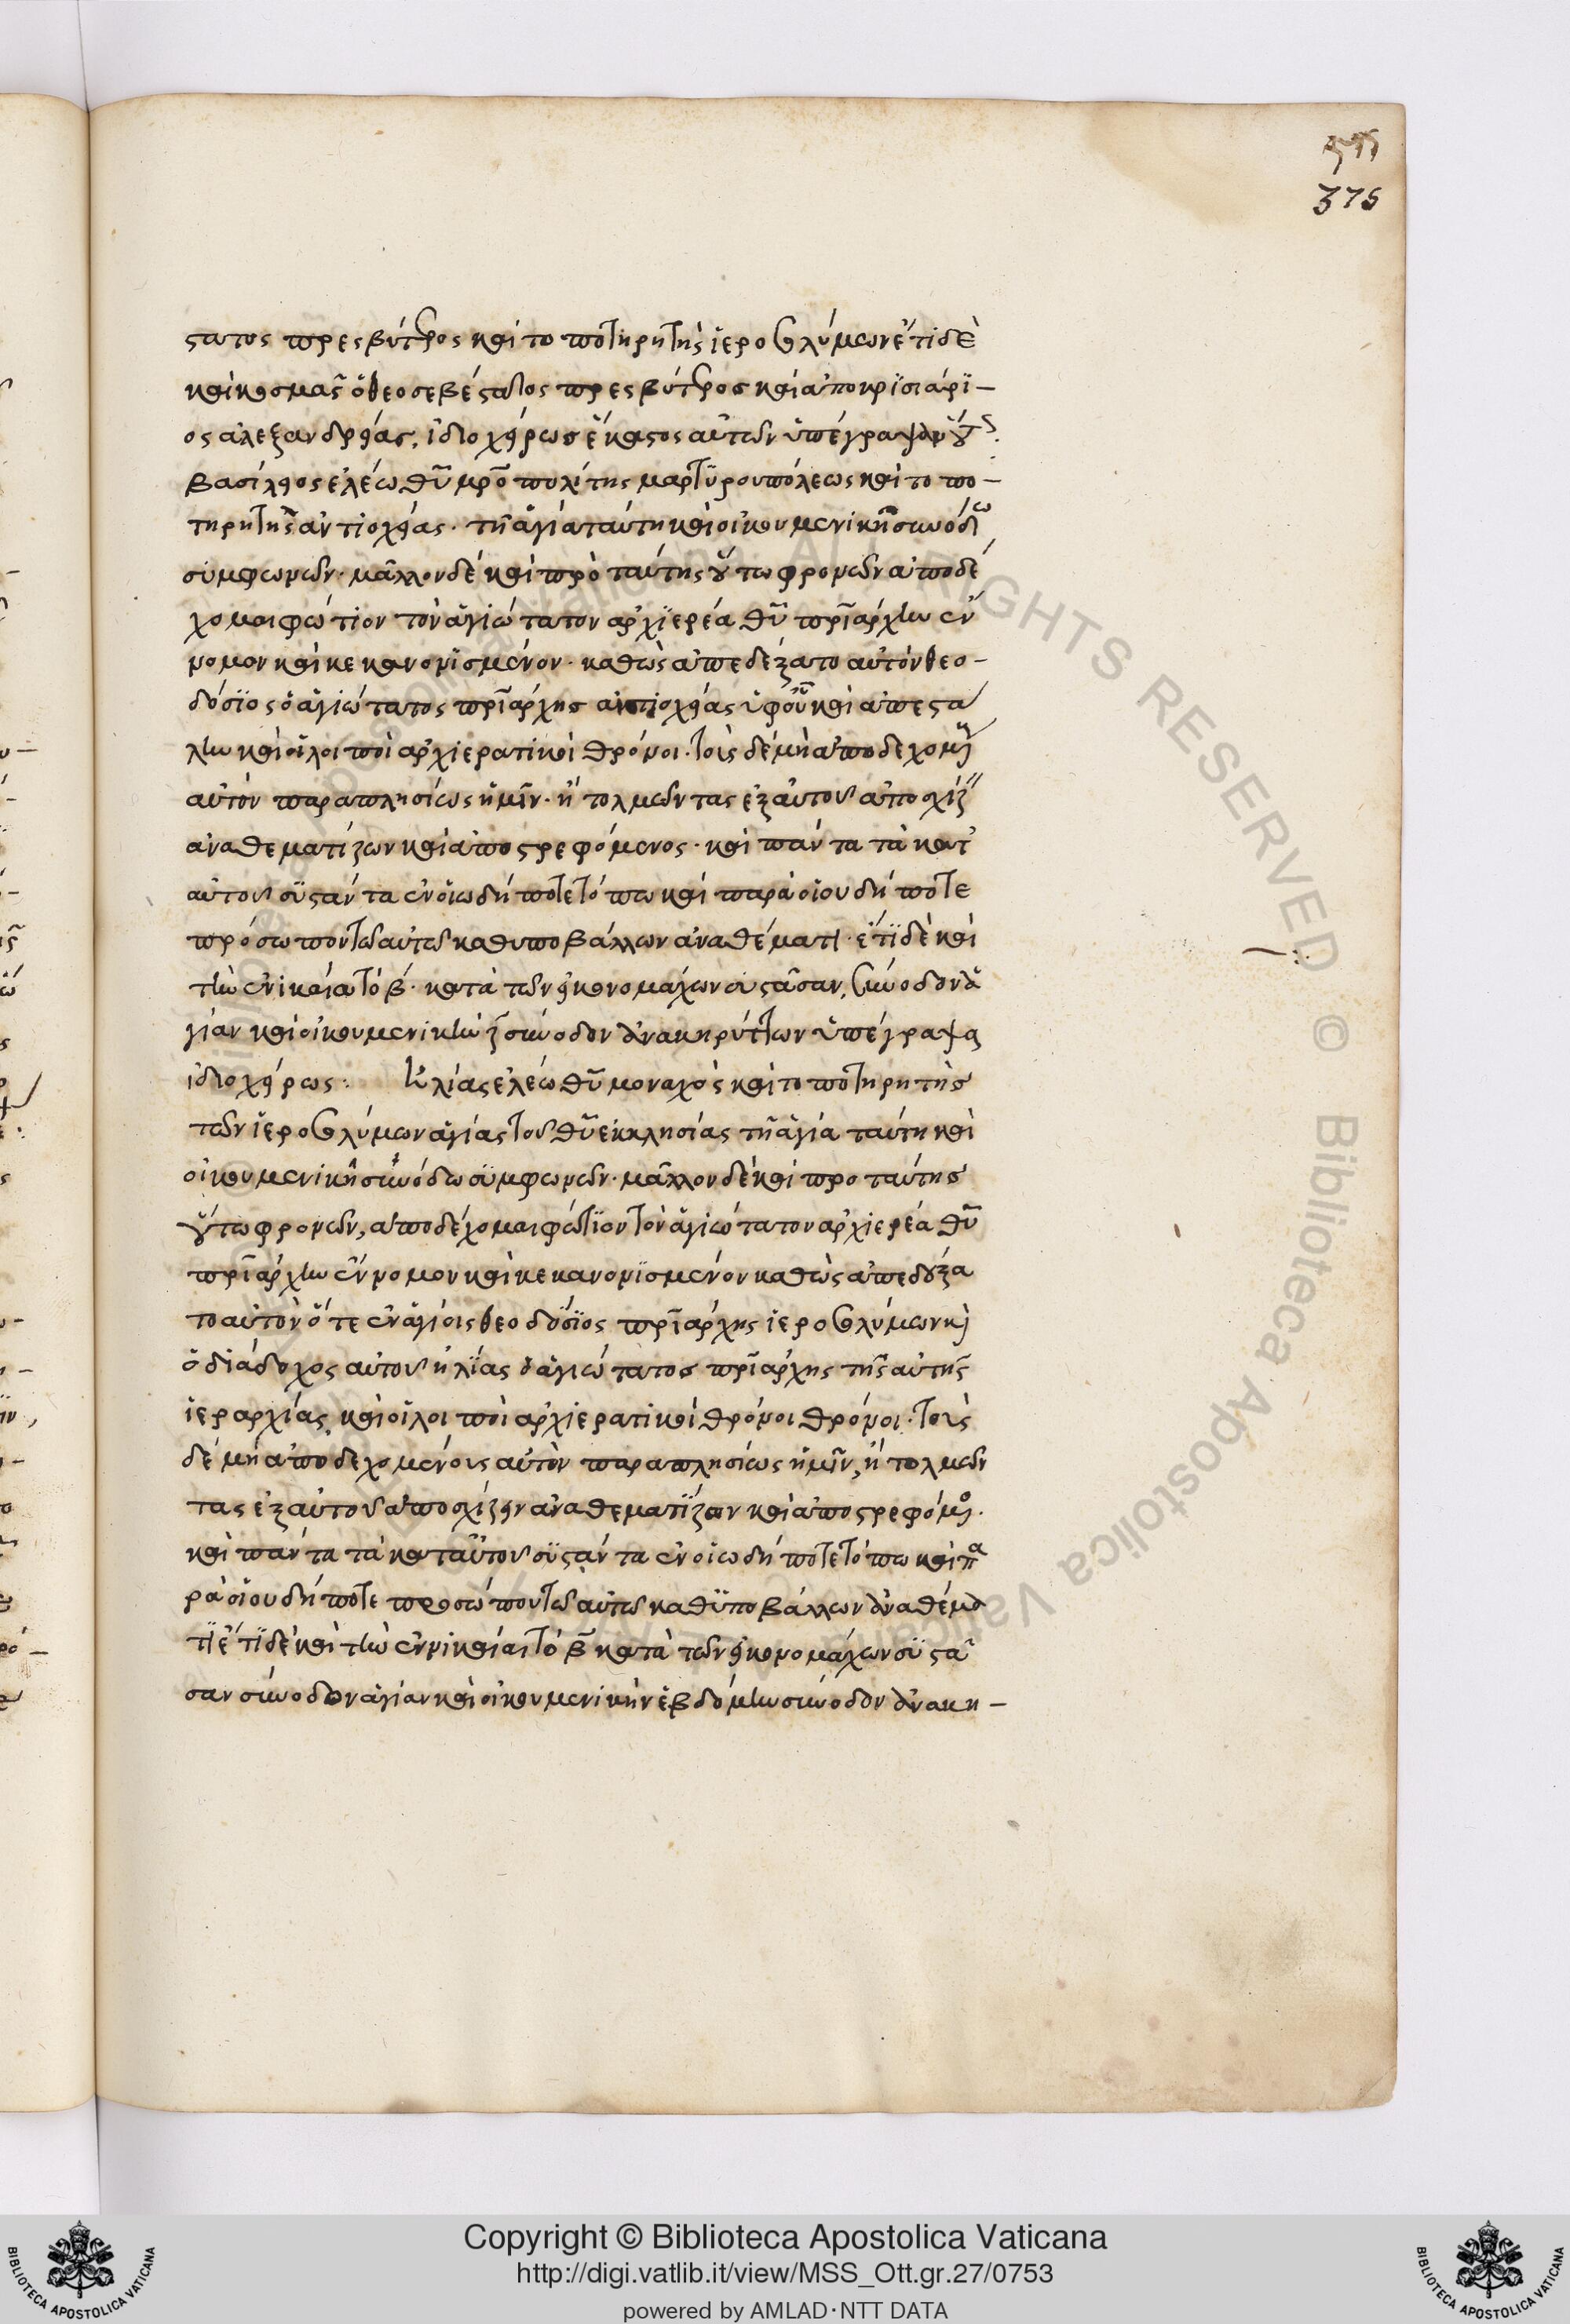 375
στατος πρεσβύτερος καὶ τοποτηρητὴς ἱεροσολύμων ἔτι δὲ
καὶ κοσμᾶς ὁ θεοσεβέστατος πρεσβύτερος καὶ ἀποκρισιάρι-
ος ἀλεξανδρείας, ἰδιοχείρως ἕκαστος αὐτῶν ὑπέγραψαν οὕτως.
βασίλειος ἐλέω θῦ μρο πολίτης μαρτυρουπόλεως καὶ τοπο-
τηρητὴς ἀντιοχείας · τῆ ἁγία ταύτη καὶ οἰκουμενικῆ συνόδω
συμφωνῶν · μᾶλλον δέ καὶ πρὸ ταύτης οὕτω φρονῶν ἀποδέ
χομαι φώτιον τὸν ἁγιώτατον ἀρχιερέα θῦ πριάρχην ἔν
νομον καὶ κεκανονισμένον · καθὼς ἀπεδέξατο αὐτόν θεο-
δόσιος ὁ ἁγιώτατος πριάρχης ἀντιοχείας ὑφ' οὗ καὶ ἀπεστά
λην καὶ οἱ λοιποὶ ἀρχιερατικοὶ θρόνοι · τοὺς δέ μὴ ἀποδεχομέν
αὐτὸν παραπλησίως ἡμῖν · ἢ τολμῶντας ἐξ αὐτοῦ ἀποσχίζ
ἀναθεματίζων καὶ ἀποστρεφόμενος · καὶ πάντα τὰ κατ'
αὐτοῦ συστάντα ἐν οἵω δήποτε τόπω καὶ παρὰ οἵου δήποτε
προσώπου τῶ αὐτῶ καθυποβάλλων ἀναθέματι · ἔτι δὲ καὶ
τὴν ἐν νικαία τὸ β · κατὰ τῶν εἰκονομάχων συστᾶσαν, σύνοδον ἁ
γίαν καὶ οἰκουμενικὴν ζ σύνοδον ἀνακηρύττων ὑπέγραψα
ἰδιοχείρως : ἠλίας ἐλέω θῦ μοναχὸς καὶ τοποτηρητὴς
τῶν ἱεροσολύμων ἁγίας τοῦ θῦ ἐκκλησίας τῆ ἁγία ταύτη καὶ
οἰκουμενικῆ συνόδω συμφωνῶν · μᾶλλον δὲ καὶ προ ταύτης
οὕτω φρονῶν, ἀποδέχομαι φώτιον τὸν ἁγιώτατον ἀρχιερέα θῦ
πριάρχην ἔννομον καὶ κεκανονισμένον καθὼς ἀπεδέξα
το αὐτὸν ὅ τε ἐν ἁγίοις θεοδόσιος πριάρχης ἱεροσολύμων καὶ
ὁ διάδοχος αὐτοῦ ἠλίας ὁ ἁγιώτατος πριάρχης τῆς αὐτῆς
ἱεραρχίας καὶ οἱ λοιποὶ ἀρχιερατικοὶ θρόνοι θρόνοι · τοὺς
δέ μὴ ἀποδεχομένους αὐτὸν παραπλησίως ἡμῖν, ἢ τολμῶν
τας ἐξ αὐτοῦ ἀποσχίζειν ἀναθεματίζων καὶ ἀποστρεφόμενος.
καὶ πάντα τὰ κατ αὐτοῦ συστάντα ἐν οἵω δήποτε τόπω καὶ πα
ρὰ οἵου δήποτε προσώπου τῶ αὐτῶ καθυποβάλλων ἀναθέμα
τι ἔτι δὲ καὶ τὴν ἐν νικαία τὸ β κατὰ τῶν εἰκονομάχων συστᾶ
σαν σύνοδον ἁγίαν καὶ οἰκουμενικὴν ἑβδόμην σύνοδον ἀνακη-
Copyright © Biblioteca Apostolica Vaticana
http://digi.vatlib.it/view/MSS_Ott.gr.27/0753
powered by AMLAD·NTT DATA